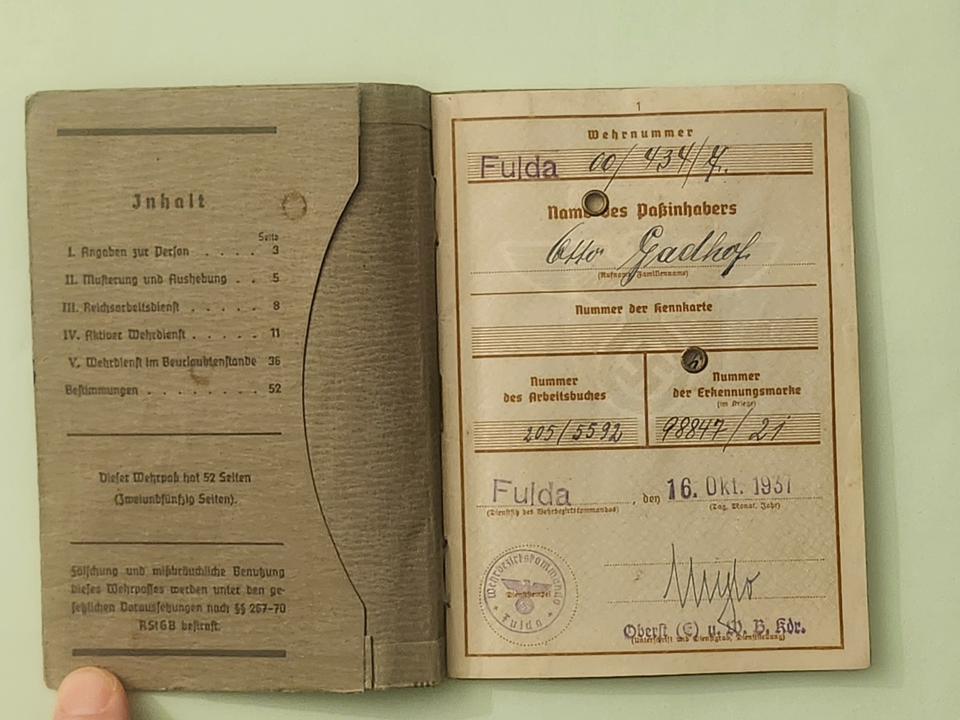 Inhalt
Seite
I. Angaben zur Person . . . . . 3
II. Musterung und Aushebung . . 5
III. Reichsarbeitsdienst . . . . . 8
IV. Aktiver Wehrdienst . . . . . 11
V. Wehrdienst im Beurlaubtenstande 36
Bestimmungen . . . . . . . . 52
Dieser Wehrpaß hat 52 Seiten
(Zweiundfünfzig Seiten).
Fälschung und mißbräuchliche Benutzung
dieses Wehrpasses werden unter den ge-
setzlichen Voraussetzungen nach §§ 267-70
RStGB bestraft.
1
Wehrnummer
Fulda 00/434/7.
Name des Paßinhabers
Otto Gadhof
(Rufname, Familienname)
Nummer der Kennkarte
Nummer
des Arbeitsbuches
205/5592
Nummer
der Erkennungsmarke
(im Kriege)
98847/21
Fulda, den 16. Okt. 1937
(Dienstsitz des Wehrbezirkskommandos)
(Tag, Monat, Jahr)
Wehrbezirkskommando
Dienststempel
Fulda
Oberst (E) u. W. B. Kdr.
(Unterschrift und Dienstgrad, Dienststellung)